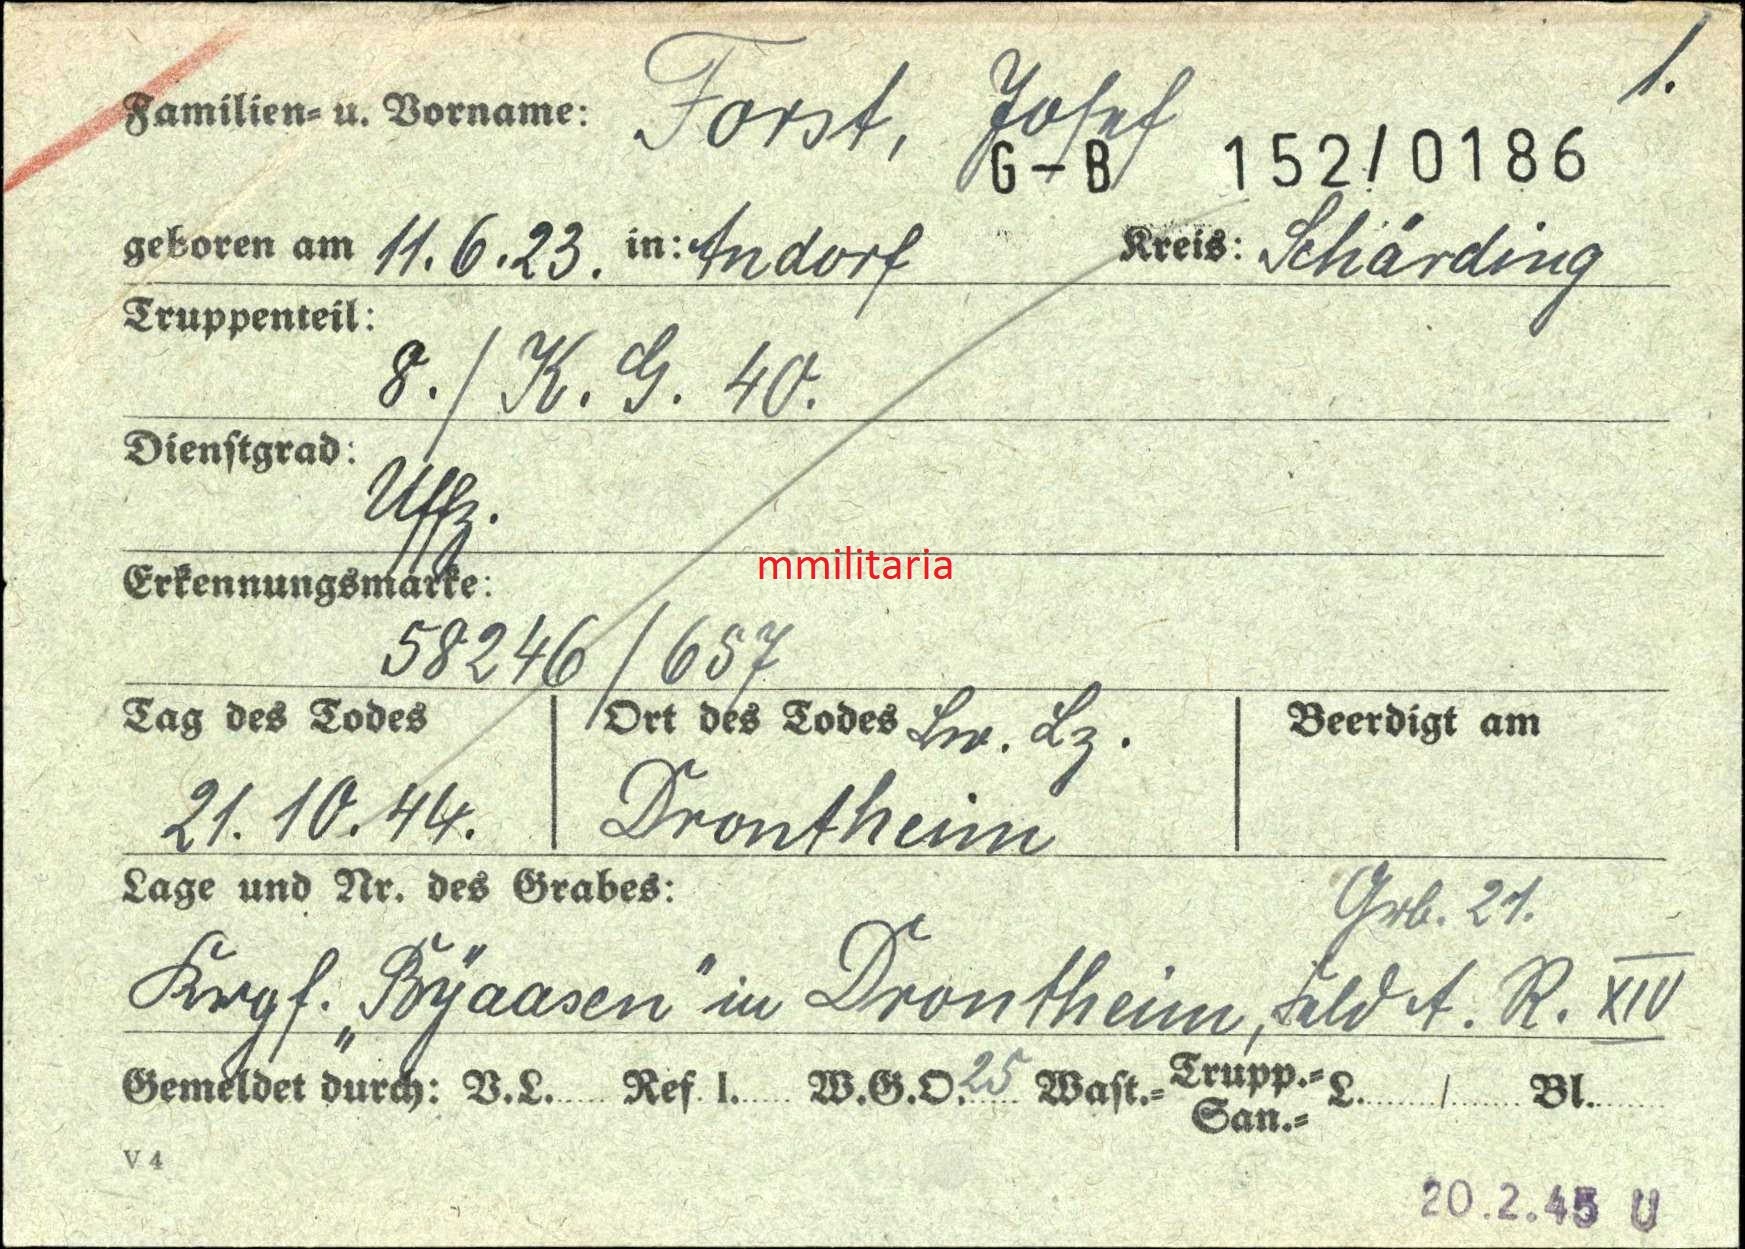 1.
Familien- u. Vorname: Forst, Josef
G-B 152/0186
geboren am 11.6.23. in: Andorf Kreis: Schärding
Truppenteil:
8./K.G. 40.
Dienstgrad:
Uffz.
Erkennungsmarke:
58246/657
mmilitaria
Tag des Todes Ort des Todes Lw. Lz. Beerdigt am
21.10.44. Drontheim
Lage und Nr. des Grabes: Grb. 21.
Krgf. „Byaasen" in Drontheim, Feld A. R. XIV
Gemeldet durch: V.L...... Ref. I...... W.G.O. 25 Wast.- Trupp.- San.- L......../........ Bl........
V 4
20.2.45 U